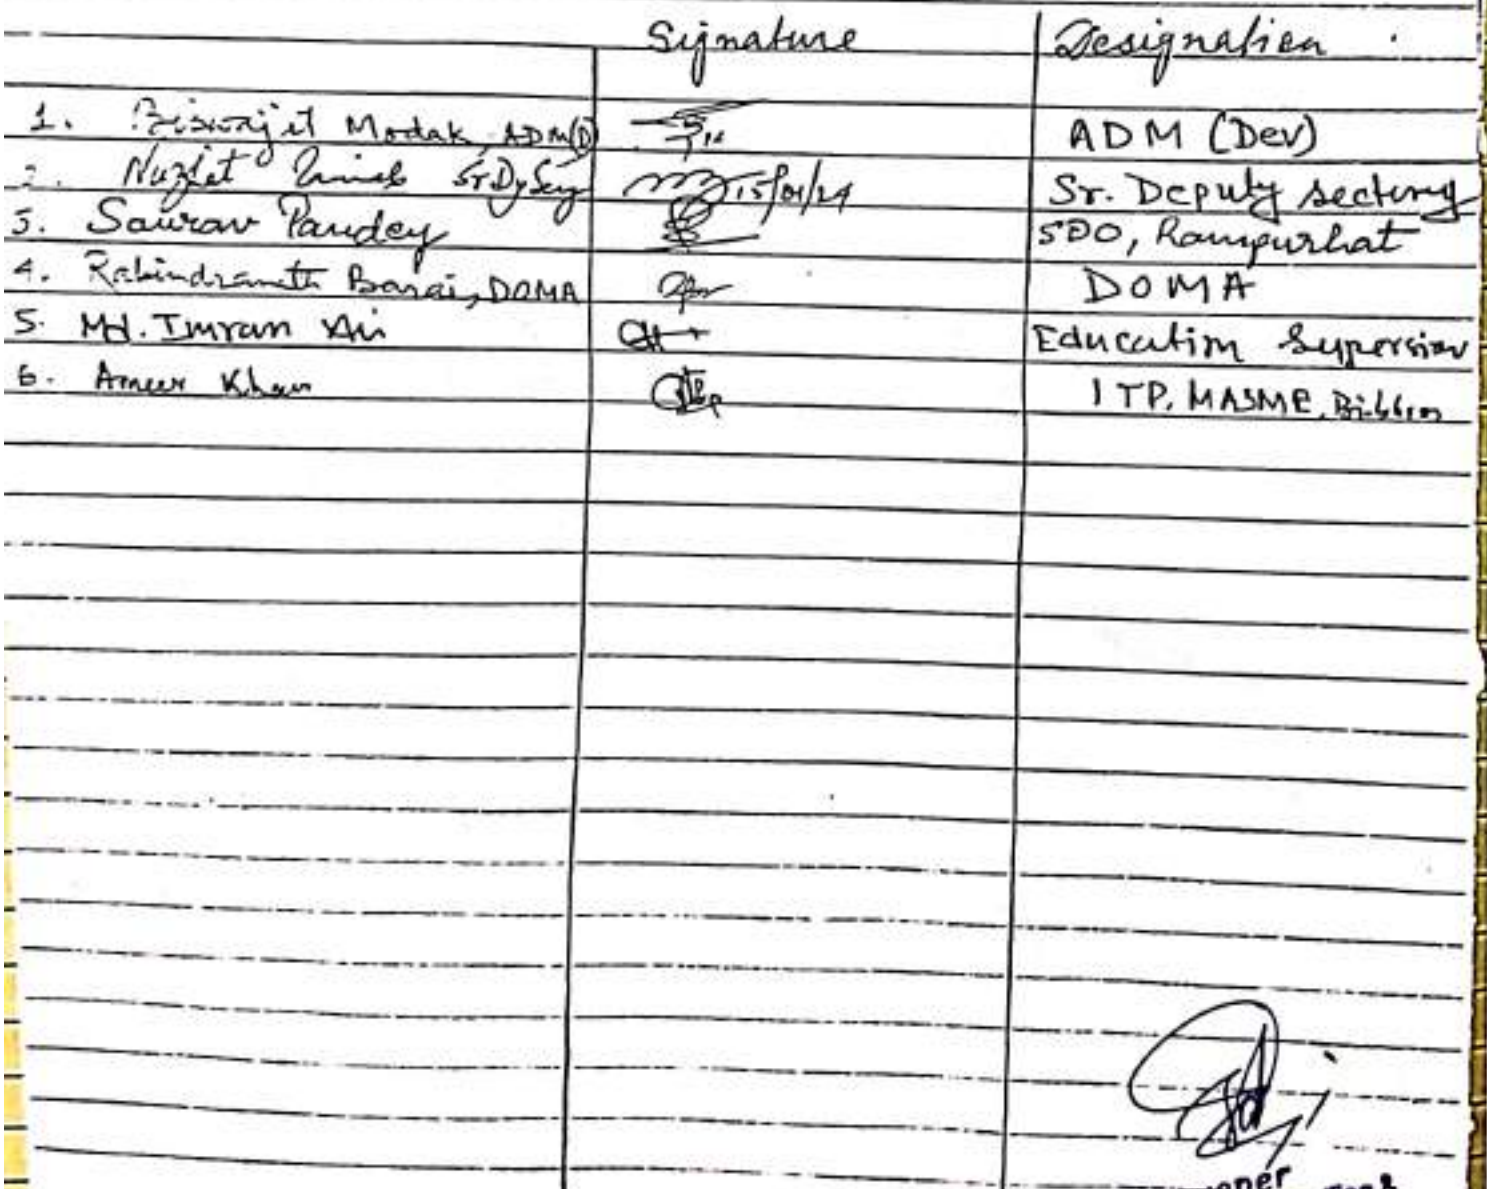 Signature Designation
1. Biswajit Modak, ADM(D) ADM (Dev)
2. Nuzhat Sr. Dy Secy 15/01/24 Sr. Deputy sectery
3. Saurav Pandey SDO, Rampurhat
4. Rabindranath Barai, DOMA DOMA
5. Md. Imran Education Supersior
6. Ameer Khan ITP, MASME,